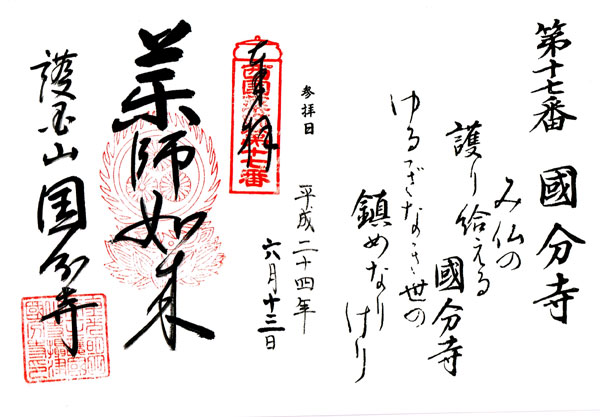 第十七番 國分寺
み仏の
護り給える
國分寺
ゆるぎなき世の
鎮めなり
けり
参拝日
平成二十四年
六月十三日
奉拝
第十七番
薬師如来
護国山国分寺